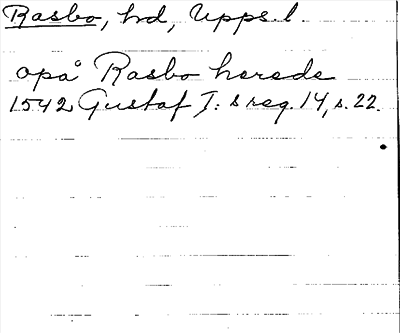 Rasbo, hd, Upps. l.
opå Rasbo herede
1542 Gustaf I:s reg. 14, s. 22.